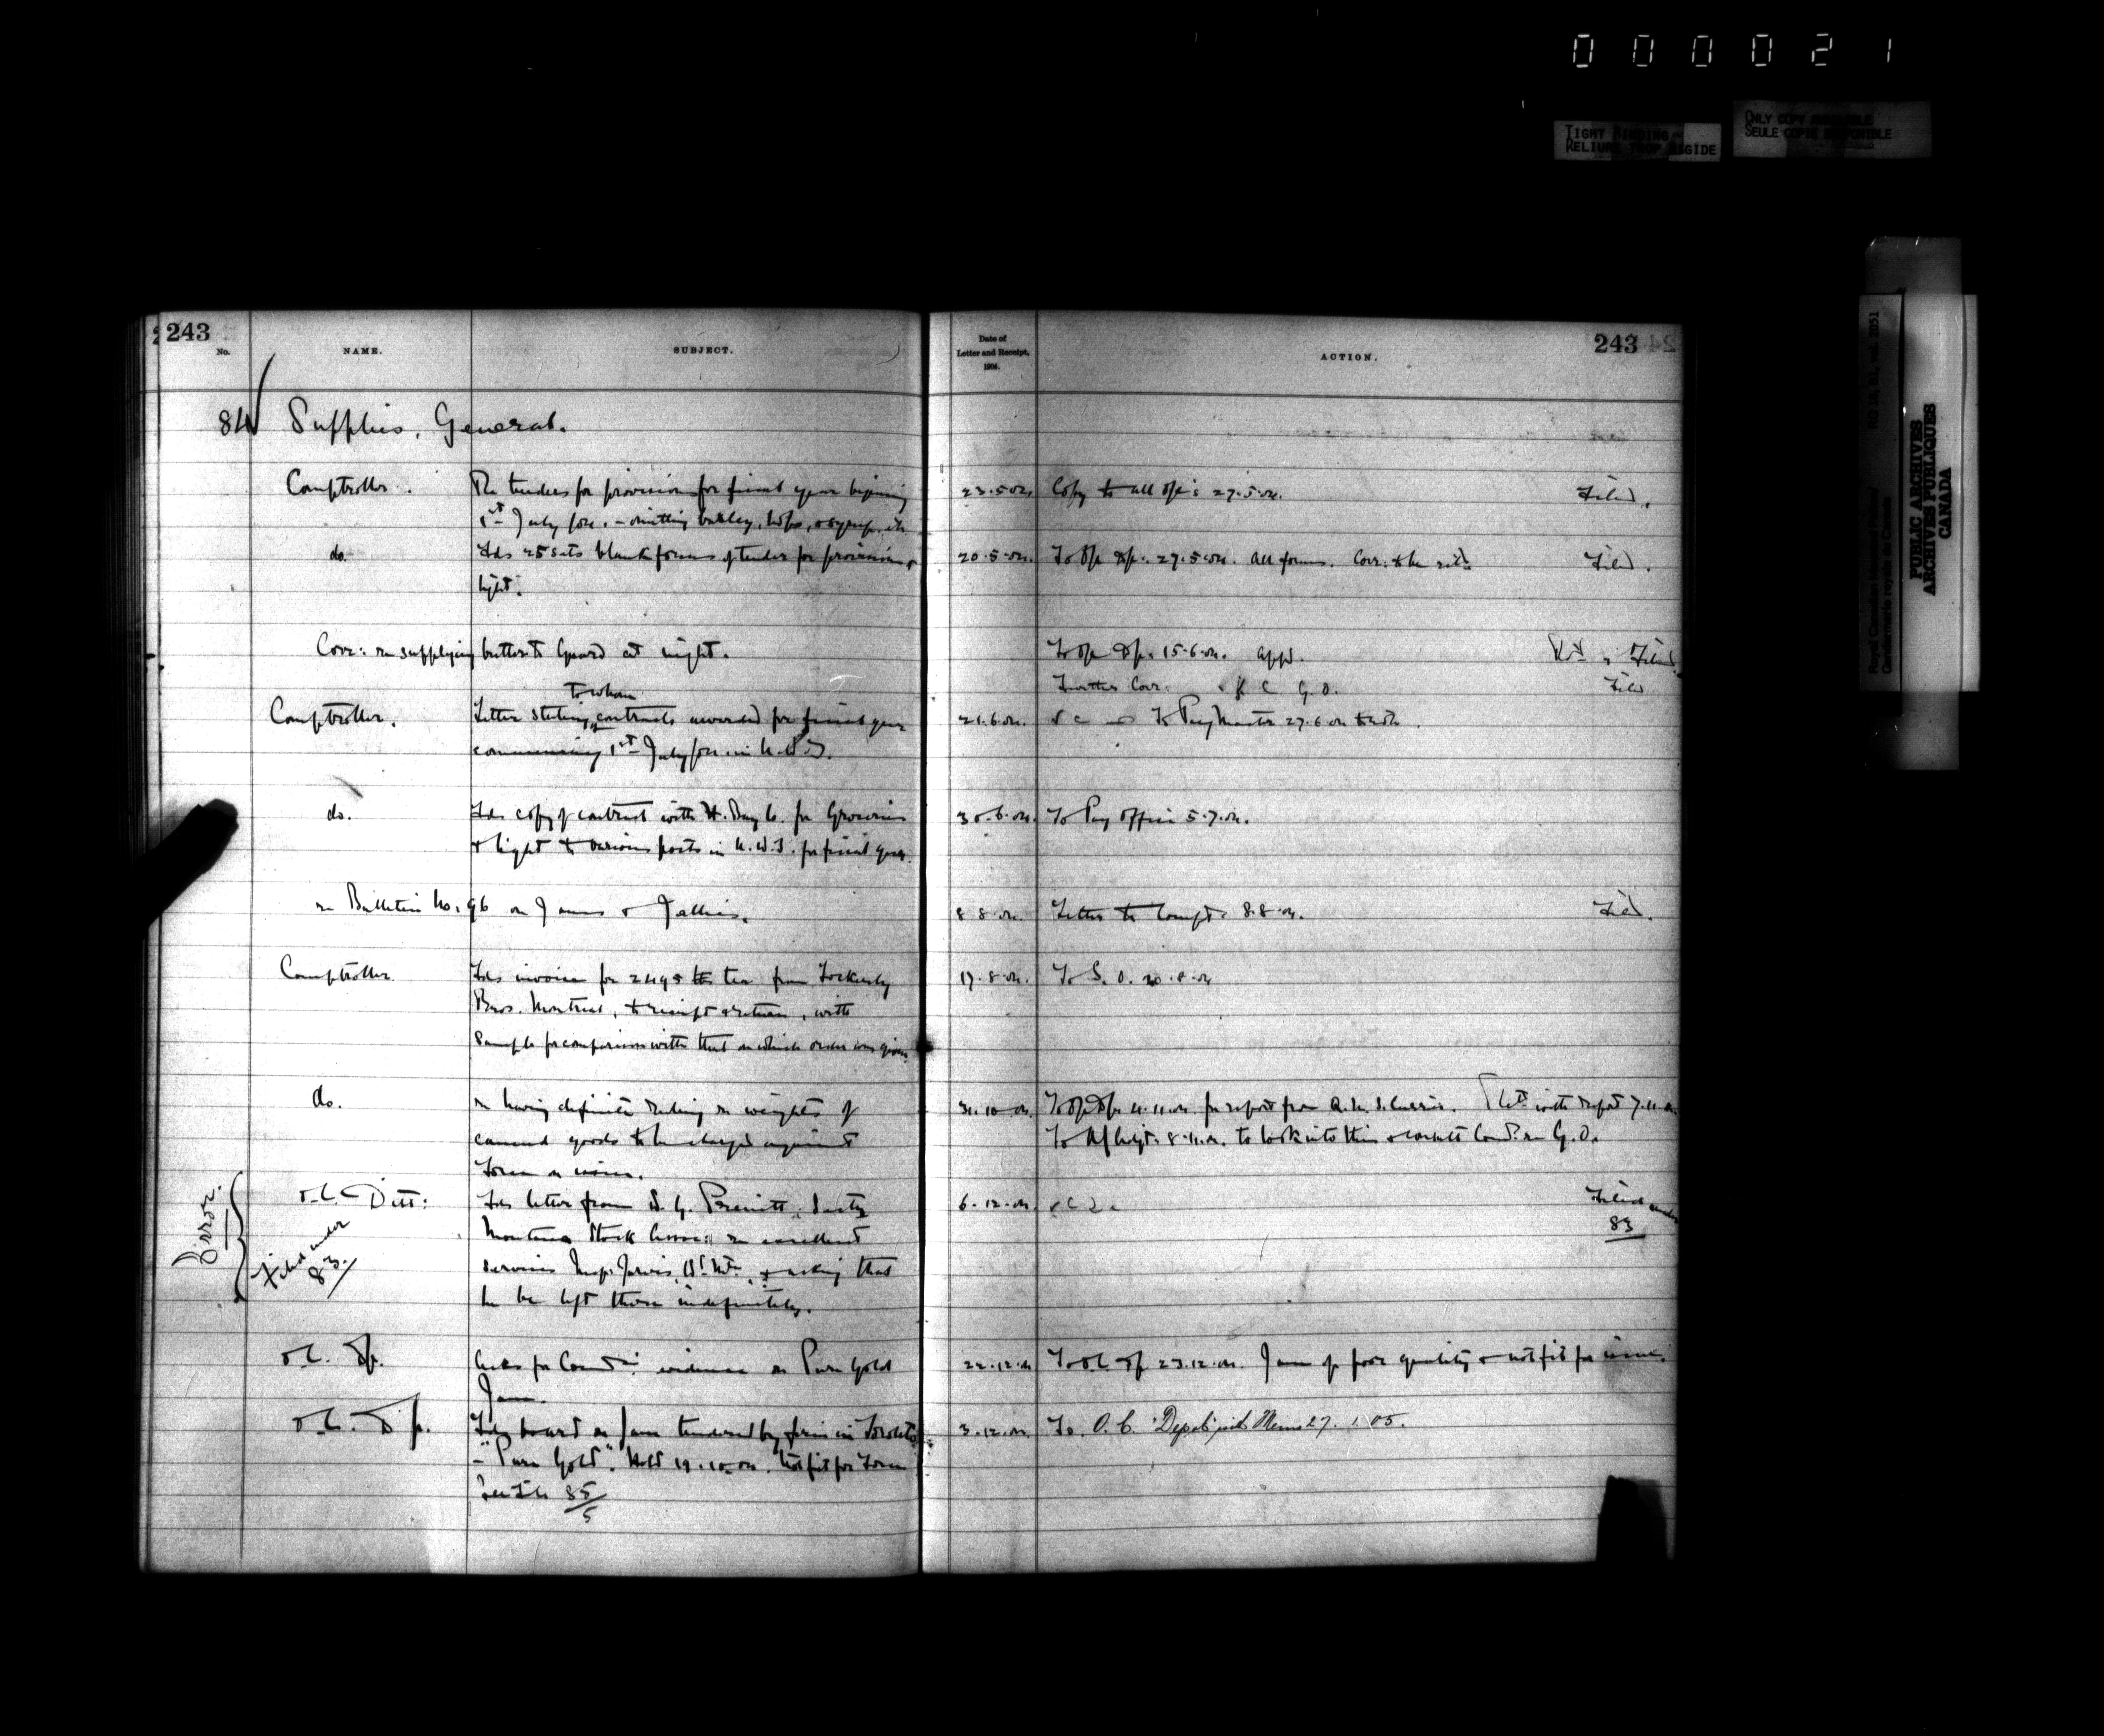 000021
TIGHT BINDING
RELIURE TROP RIGIDE
ONLY COPY AVAILABLE
SEULE COPIE DISPONIBLE
Royal Canadian Mounted Police
Gendarmerie royale du Canada
RG 18, B1, vol. 2051
PUBLIC ARCHIVES
ARCHIVES PUBLIQUES
CANADA
243
No.
NAME.
SUBJECT.
Date of
Letter and Receipt,
1904.
ACTION.
243
84 Supplies, General.
Comptroller. Re tenders for provisions for fiscal year beginning 23.5.04. Copy to all 27.5.04. Filed.
1st July /04. - omitting barley, hops, & syrup, etc
do. Fds 25 sets blank forms of tender for provisions & 20.5.04. 27.5.04. all forms. Corr: to be Filed.
light.
Corr: re supplying butter to Guard at night. 15.6.04. appd. & Filed
Further Corr: G.O. Filed
to whom
Comptroller. Letter stating contracts awarded for fiscal year 21.6.04. To Paymaster 27.6.04
commencing 1st July /04. in N.W.T.
do. Fds copy of contract with H. Bay Co. for Groceries 30.6.04. To Pay Office 5.7.04.
& light to various posts in N.W.T. for fiscal year.
re Bulletin No. 96 on Jams & Jellies. 8.8.04. Letter to Compt. 8.8.04. Filed.
Comptroller Fds invoice for 2495 lbs tea from 17.8.04. To S.O. 20.8.04
Bros. Montreal, to receipt & return, with
sample for comparison with that on which order was given
do. re having definite ruling re weights of 31.10.04 4.11.04. for report from Retd. with report 7.11.04
canned goods to be charged against 8.11.04. to look into this & G.O.
Force on issue.
Error.
Filed under
83.
O.C. Fds letter from W. G. Secty 6.12.04. Filed under
83
Montana Stock Assoc: re excellent
services Insp. Jarvis, & asking that
he be left there indefinitely.
O.C. Dp. Asks for evidence on Pure Gold 22.12.04 To O.C. Dp 23.12.04. Jam of poor quality & not fit for issue.
Jam.
O.C. Dp. Fds board on Jam tendered by firm in Toronto 3.12.04. To O.C. "Depot" with Memo 27.1.05.
- "Pure Gold". Held 19.10.04. Not fit for Force
See File 85/5